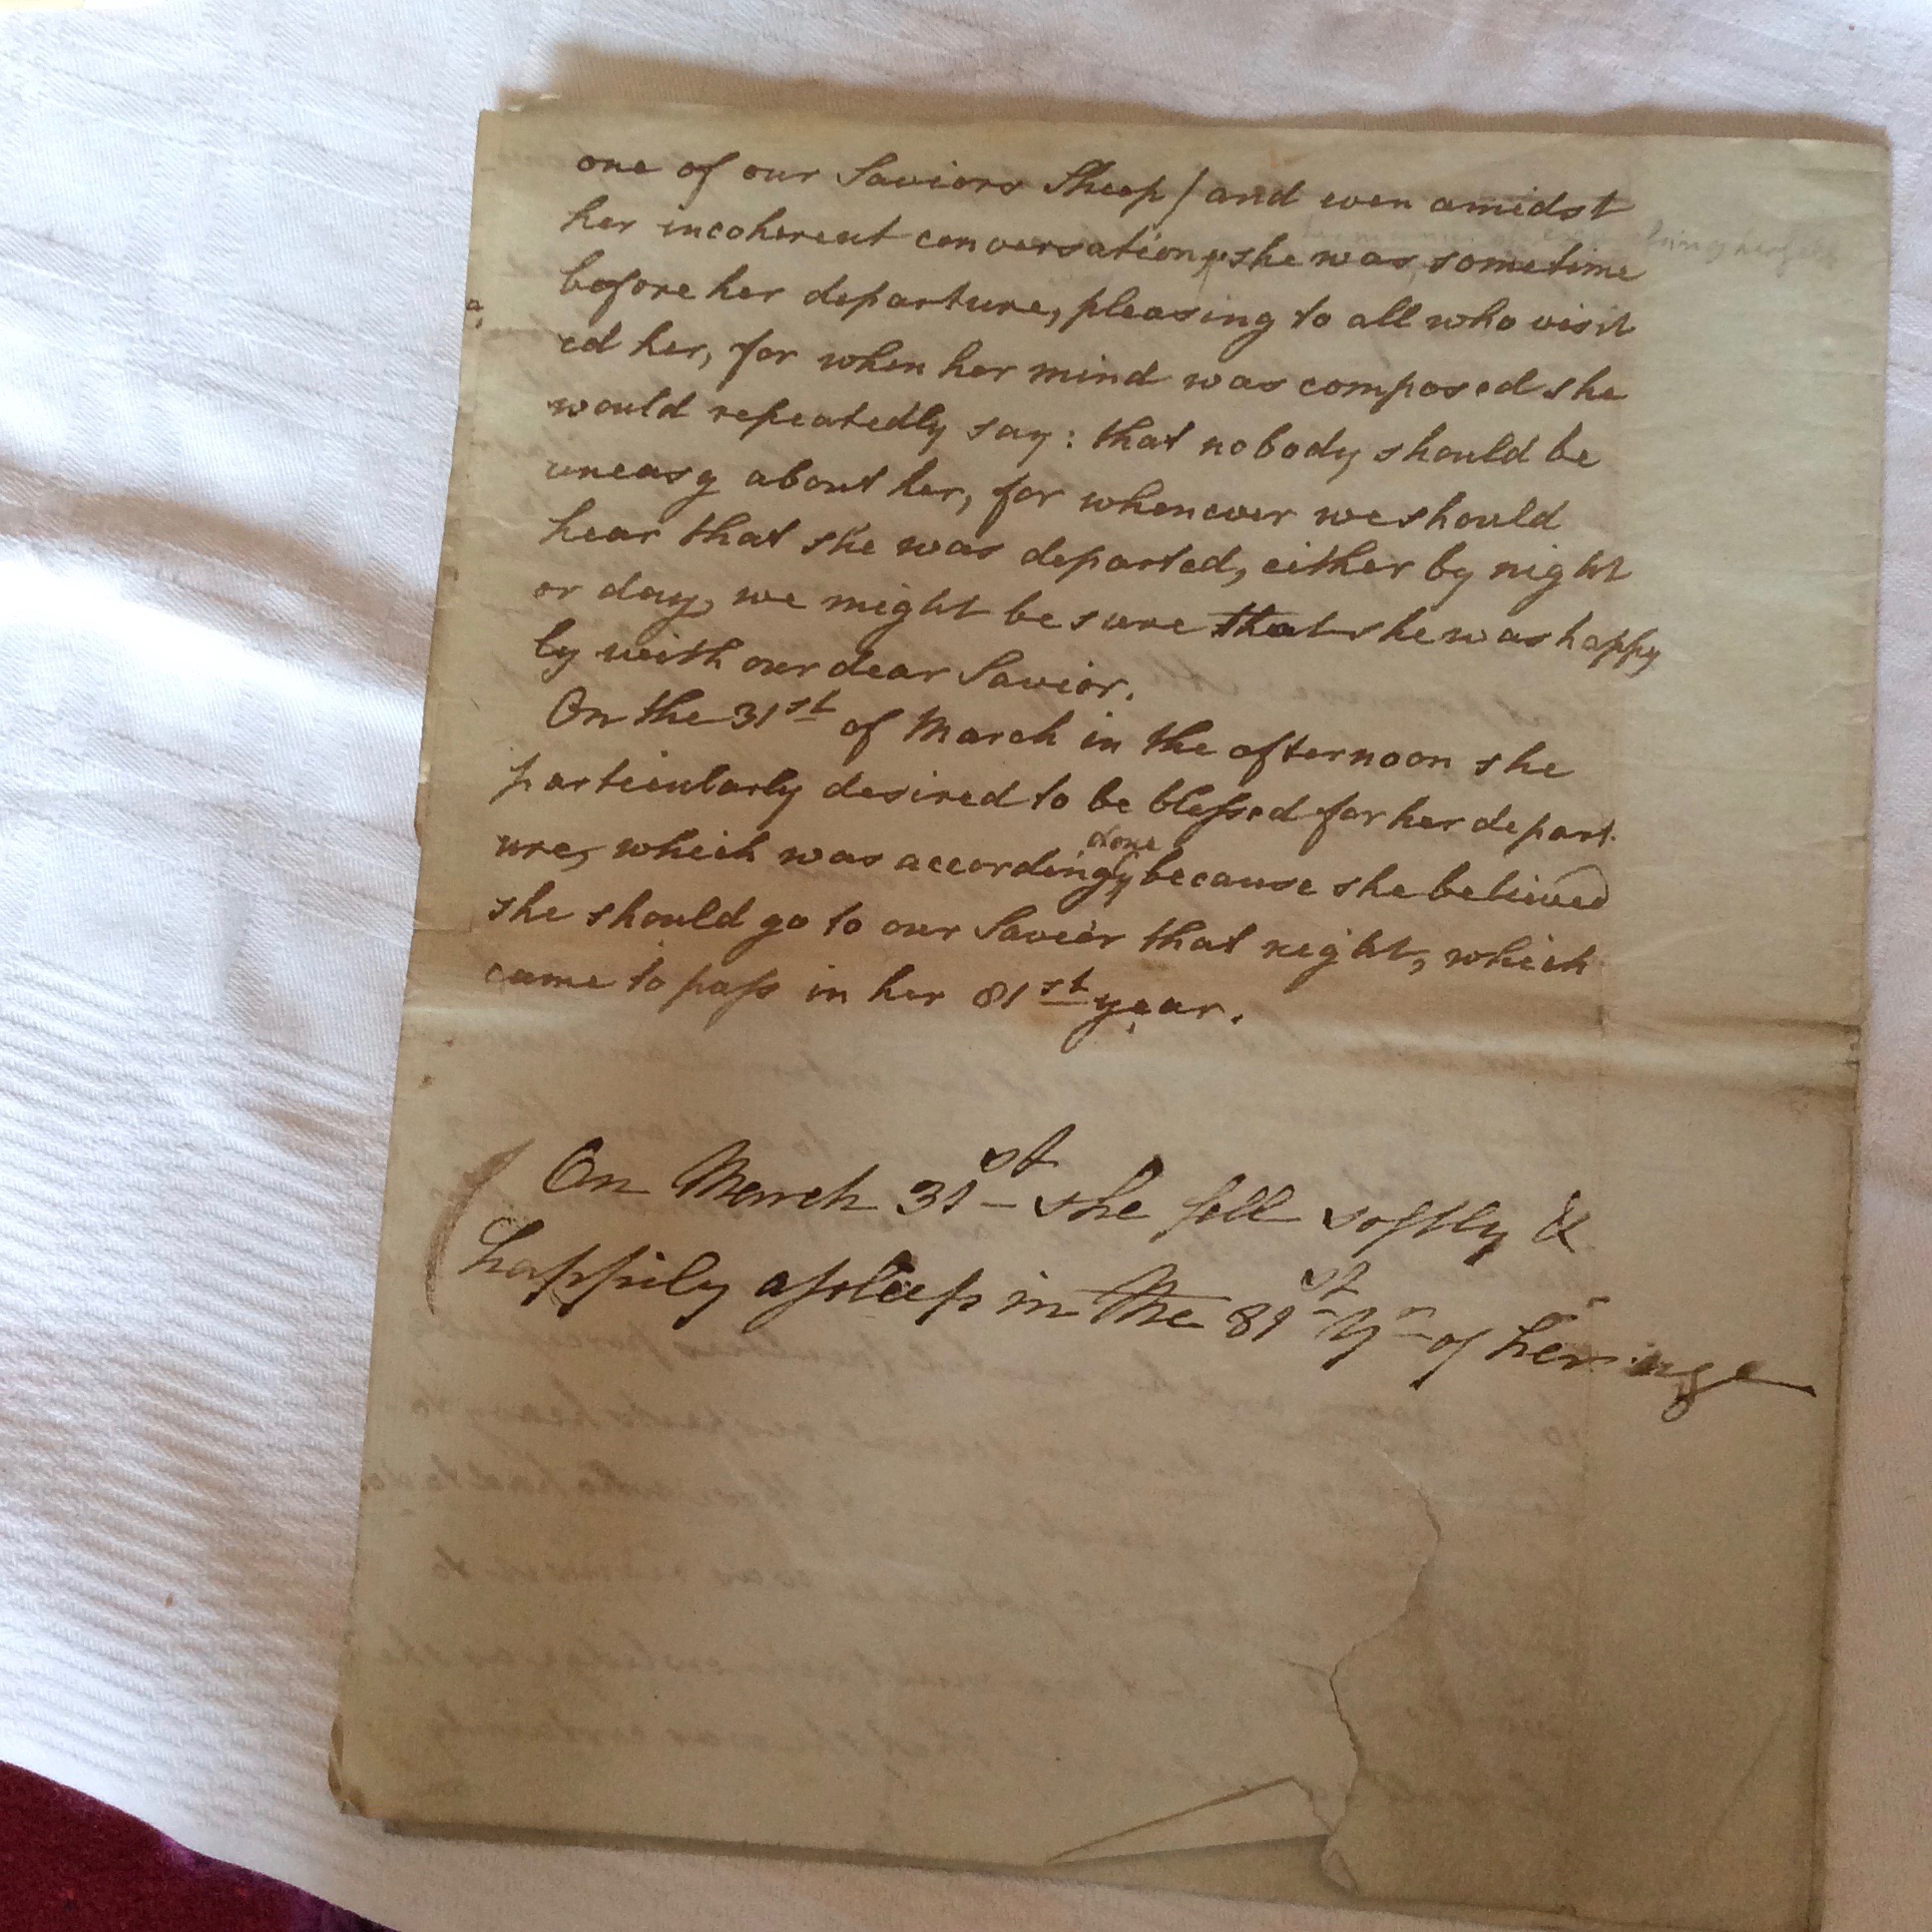 one of our Saviors Sheep / and even amidst
her incoherent conversation, she was, sometime
before her departure, pleasing to all who visit
ed her, for when her mind was composed she
would repeatedly say: that nobody should be
uneasy about her, for whenever we should
hear that she was departed, either by night
or day, we might be sure that she was happy
ly with our dear Savior.
On the 31st of March in the afternoon she
particularly desired to be blessed for her depart.
ure, which was accordingly done because she believed
she should go to our Savior that night, which
came to pass in her 81st year.
On March 31st she fell softly &
happily assleep in the 81st Yr of her age